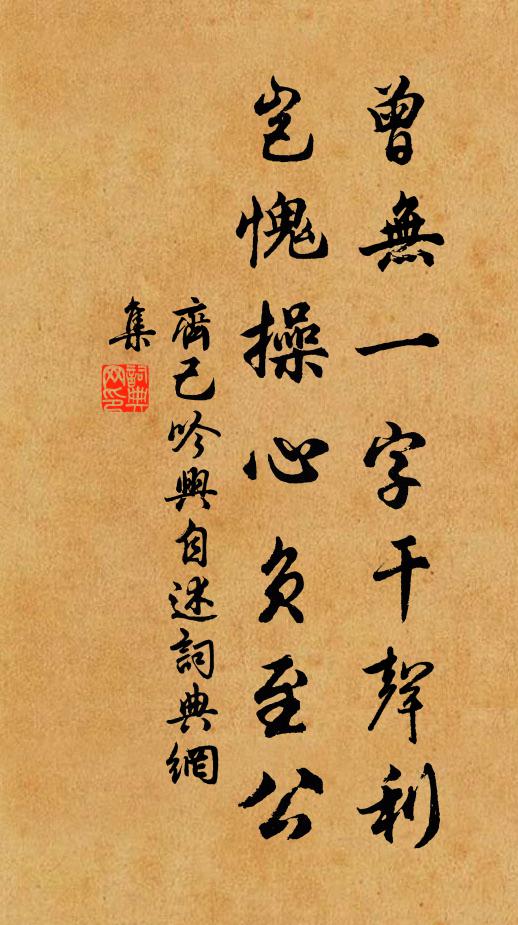 曾無一字干聲利
豈愧操心負至公
齊己吟興自述詞典網
集
詞典
网印